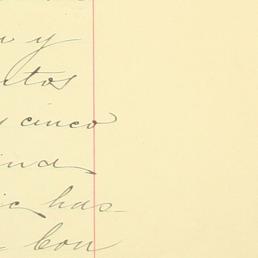 y
tos
cinco
ina
has-
Con